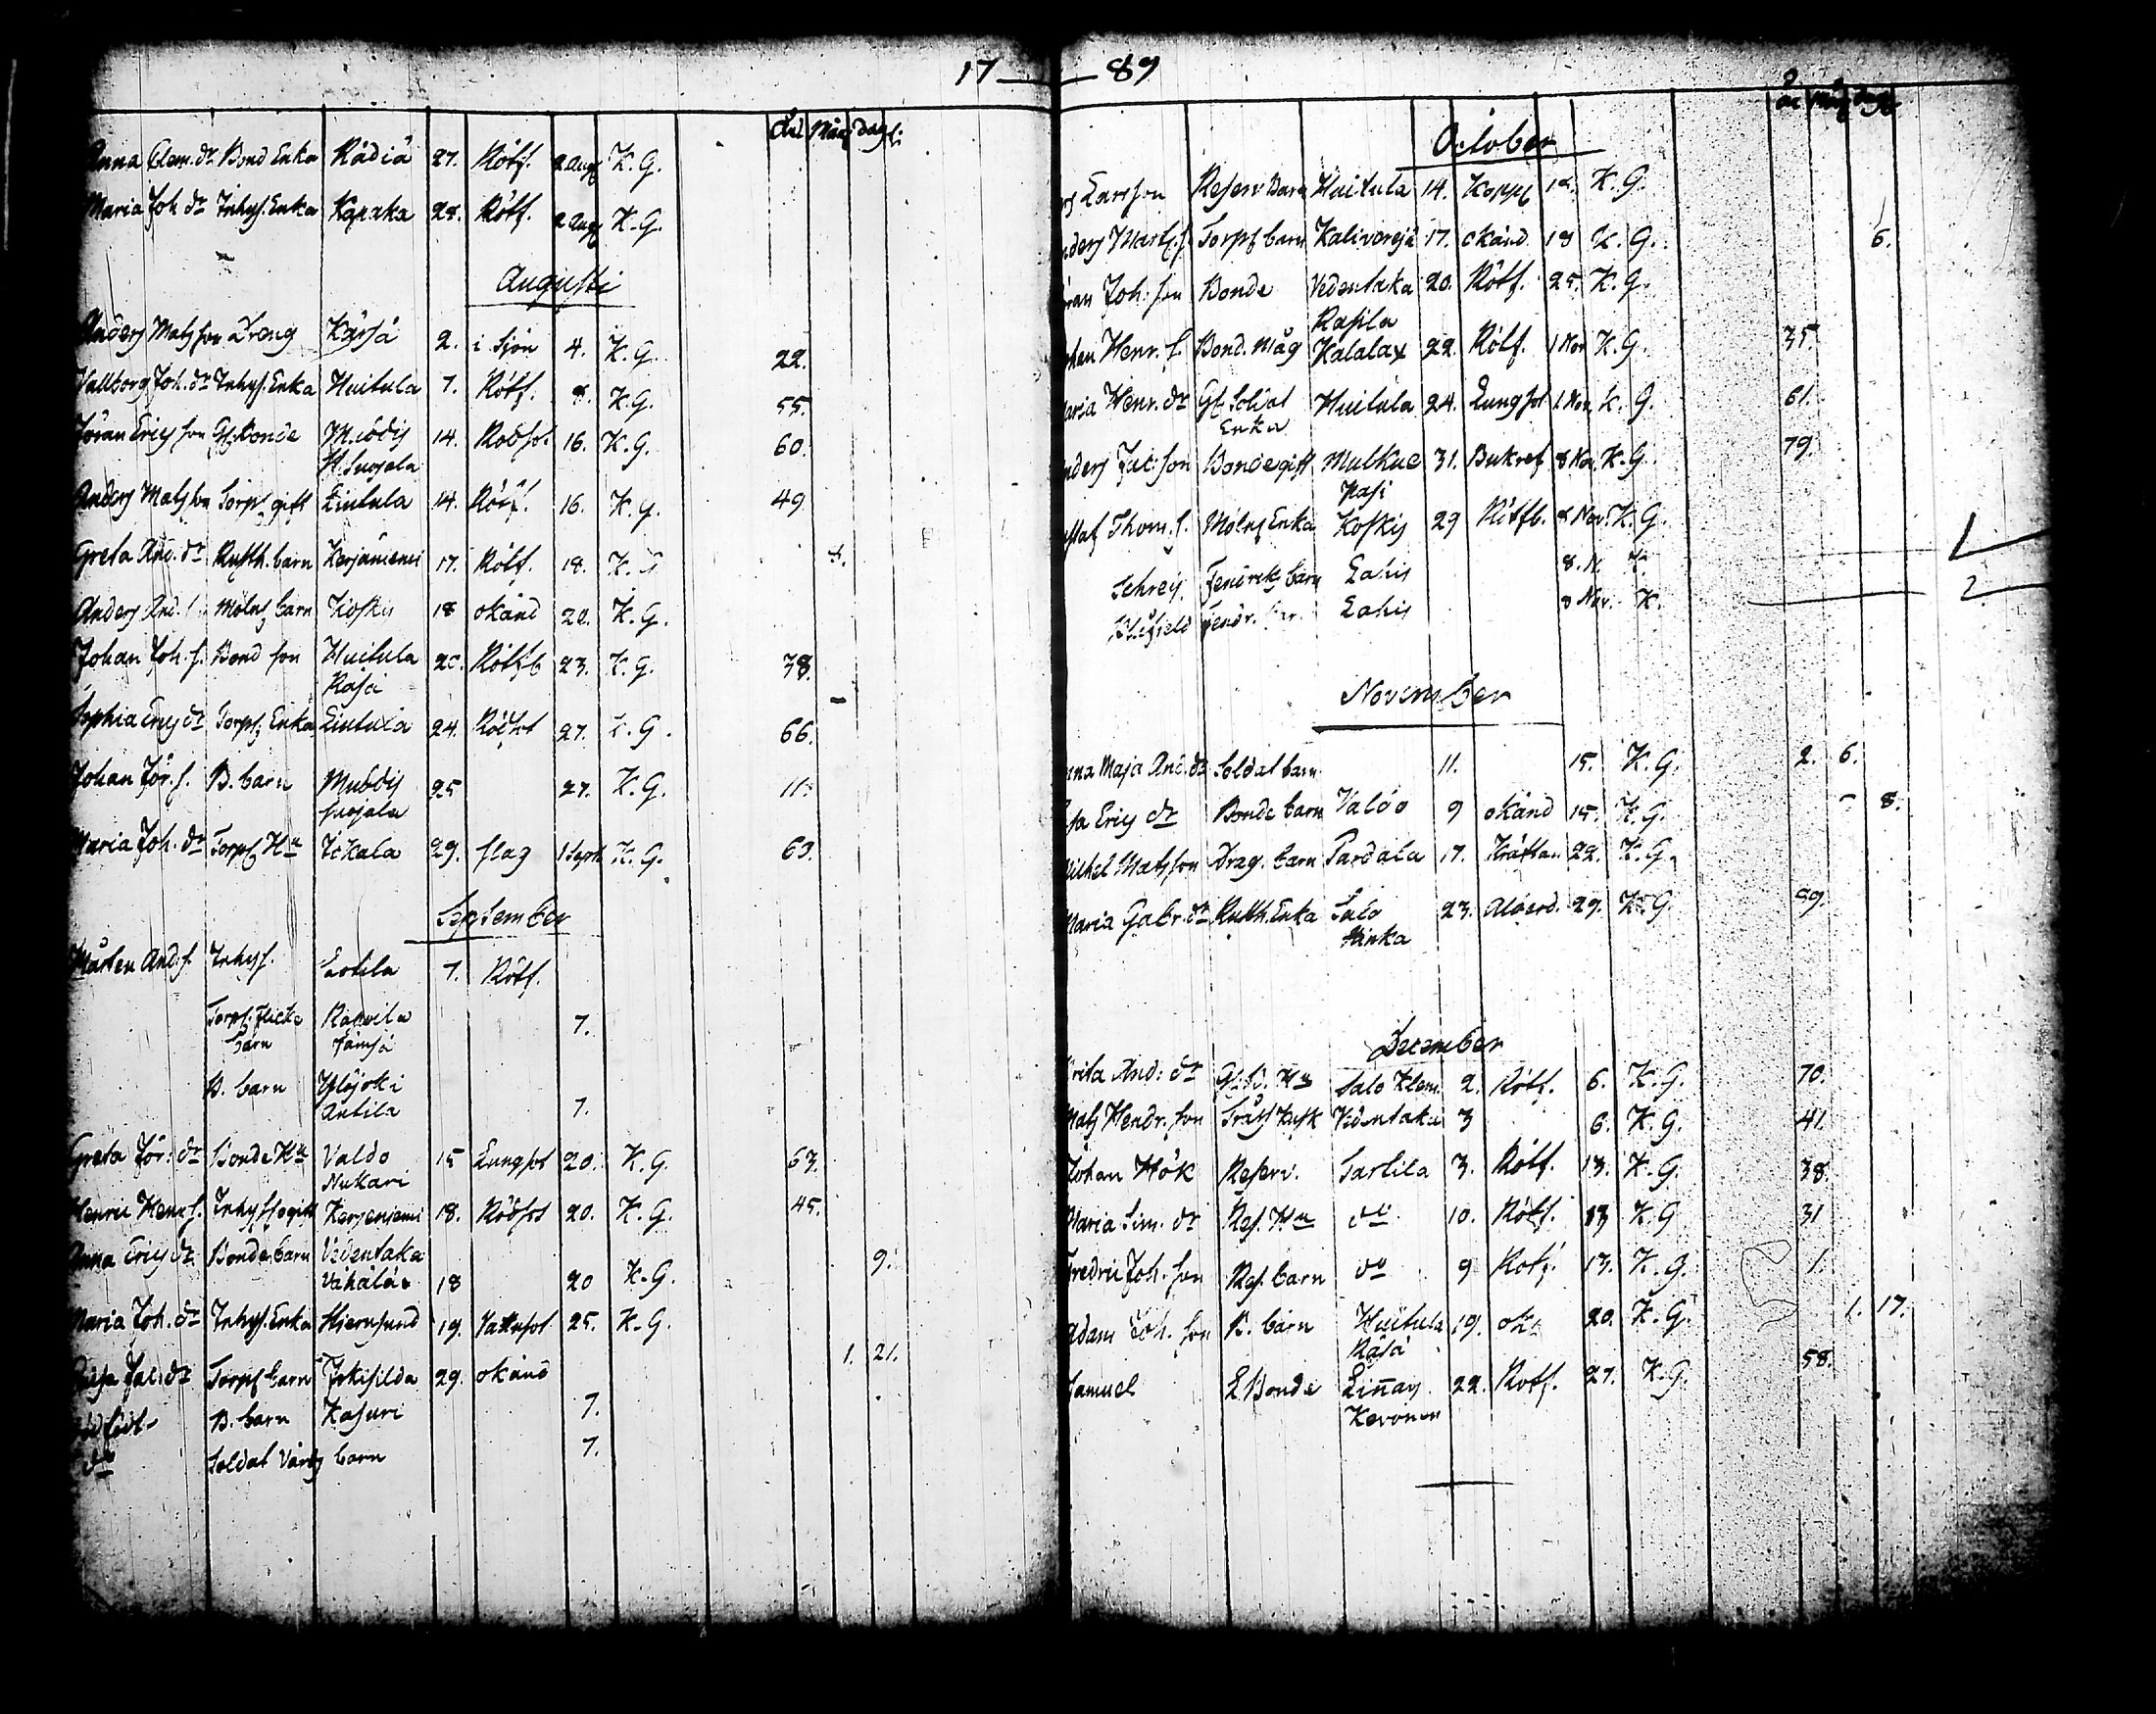 17 — 89
åhr Mån dag
Anna Clem. dr Bond Enka Rådiä 27. Rötf. 2 Aug K. G.
Maria Joh dr Inhys. Enka Karaka 28. Rötf. 2 Aug K. G.
Augusti
Anders Matsson Dreng Kärsä 2. i Sjön 4. K. G. 22.
Vallborg Joh. dr Inhys. Enka Huitula 7. Rötf. 8. K. G. 55.
Jöran Ericsson Gl. Bonde 14. Rödsot 16. K. G. 60.
Anders Matsson Torp. gift Liutula 14. Rötf. 16. K. G. 49
Greta And. dr Rusth. barn Kerjäniemi 17. Rötf. 18. K. G.
Anders And. Möln barn Koskis 18 okänd 20. K. G.
Johan Joh. s. Bond son Huitula 20. Rötfb 23. K. G. 38.
Rasa
Sophia Erics dr Torp. Enka Liutula 24. Rödsot 27. K. G. 66.
Johan Jör. s. B. barn Mubdis 25 27. K. G. 11.
Suojala
Maria Joh. dr Torp. Hu Tökala 29. slag 1 Sept K. G. 63.
September
Mårten And. s. Inhys. Lotila 7. Rötf.
Torp. flicke Rahvila 7.
barn Jämsä
B. barn Ylöjoki
Antila 7.
Greta Jör: dr Bonde Hu Valdo 15 Lungsot 20. K. G. 63.
Nukari
Henric Henr. s. Inhys. gift Kerjenjemi 18. Rödsot 20. K. G. 45.
Anna Erics dr Bonde barn Vedentaka 9.
18 20 K. G.
Maria Joh. dr Inhys. Enka Hiernsund 19. Vattusot 25. K. G.
Jac: dr Torp barn Jokisilda 29. okänd 1. 21.
B. barn Kasuri 7.
do Soldat Värfs barn 7.
år Mån dag
October
Larsson Reserv Barn Huitula 14. Kopp 18. K. G.
Anders Mart. s. Torp barn 17. okänd 18 K. G. 6.
Jöran Joh: son Bonde Vedentaka 20. Rötf. 25. K. G.
Rasila
Johan Henr. s. Bond. Måg Kalalax 22. Rötf. 1 Nov K. G. 35.
Maria Henr. dr Gl Soldat Huitula 24. Lungsot 1. Nov. K. G. 61.
Enka
Anders Jac: son Bonde gift Mulkue 31. Bukref 8 Nov. K. G. 79.
Gustaf Thom. s. Möln Enka Koskis 29 Rötfb. 8 Nov. K. G. 1
Schrey. Fendriks barn Lahis 8. N. K.
Fendr. Lahis 8 Nov. K. 2.
November
Anna Maja And. dr Soldat barn 11. 15. K. G. 2. 6.
Erics dr Bonde barn Valdo 9 okänd 15. K. G. - 8.
Michel Matsson Drag. barn Pardala 17. 22. K. G.
Maria Gabr. dr Rusth. Enka Salo 23. Ålderd. 29. K. G. 89.
Hinka
December
Brita And: dr Gl: Hu Salo Klem 2. Rötf. 6. K. G. 70.
Mats Hendr. son Vedentaka 3 6. K. G. 41.
Johan Hök Reserv. Sartila 3. Rötf. 13. K. G. 38.
Maria Sim. dr Res. Hu do 10. Rötf. 13 K. G 31
Fredric Joh. son Res. barn do 9 Rötf. 13. K. G. 1.
Adam Joh. son B. barn Huitula 19. ok: 20. K. G. 1. 17.
Räsä
Samuel Bonde Linnays 22. Rotf. 27. K. G. 58.
Kevonen